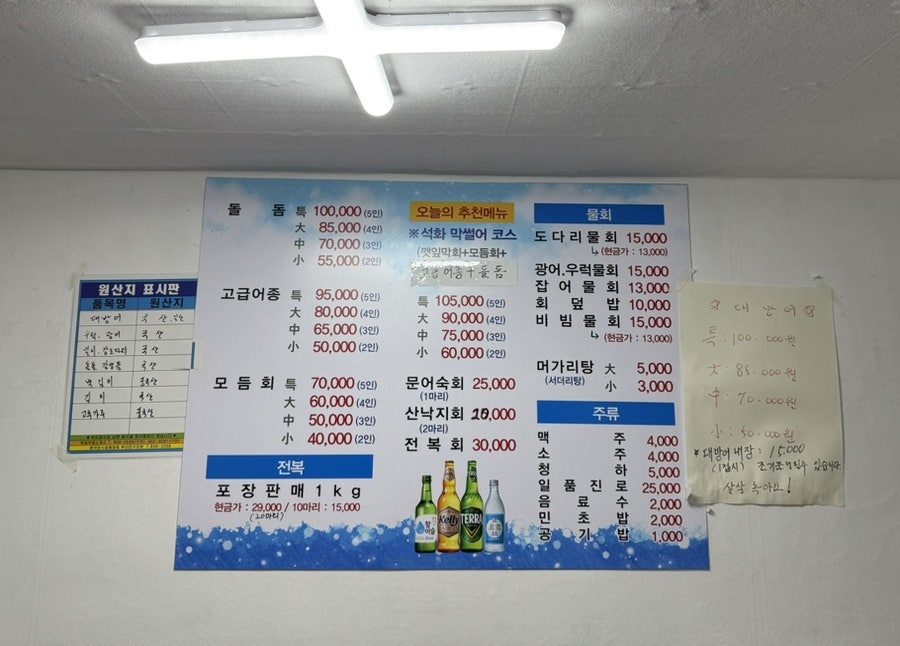 원산지 표시판
품목명 원산지
대방어 국산
우럭. 광어 국산
국산
국산
중국산
김치 국산
고춧가루 중국산
돌돔 특 100,000 (5인)
大 85,000 (4인)
中 70,000 (3인)
小 55,000 (2인)
고급어종 특 95,000 (5인)
大 80,000 (4인)
中 65,000 (3인)
小 50,000 (2인)
모듬회 특 70,000 (5인)
大 60,000 (4인)
中 50,000 (3인)
小 40,000 (2인)
전복
포장판매 1kg
현금가 : 29,000 / 10마리 : 15,000
(20마리)
오늘의 추천메뉴
※석화 막썰어 코스
(깻잎막회+모듬회+
고급어종+돌돔
특 105,000 (5인)
大 90,000 (4인)
中 75,000 (3인)
小 60,000 (2인)
문어숙회 25,000
(1마리)
산낙지회 20,000
(2마리)
전복회 30,000
참이슬
Kelly
TERRA
물회
도다리물회 15,000
↳(현금가 : 13,000)
광어.우럭물회 15,000
잡어물회 13,000
회덮밥 10,000
비빔물회 15,000
↳(현금가 : 13,000)
머가리탕 大 5,000
(서더리탕) 小 3,000
주류
맥주 4,000
소주 4,000
청하 5,000
일품진로 25,000
음료수 2,000
민초밥 2,000
공기밥 1,000
대방어
특 : 100.000원
大 : 85.000원
中 : 70.000원
小 : 50.000원
* 대방어내장 : 15.000
(1접시) 조기품절될수 있습니다
살살 녹아요!